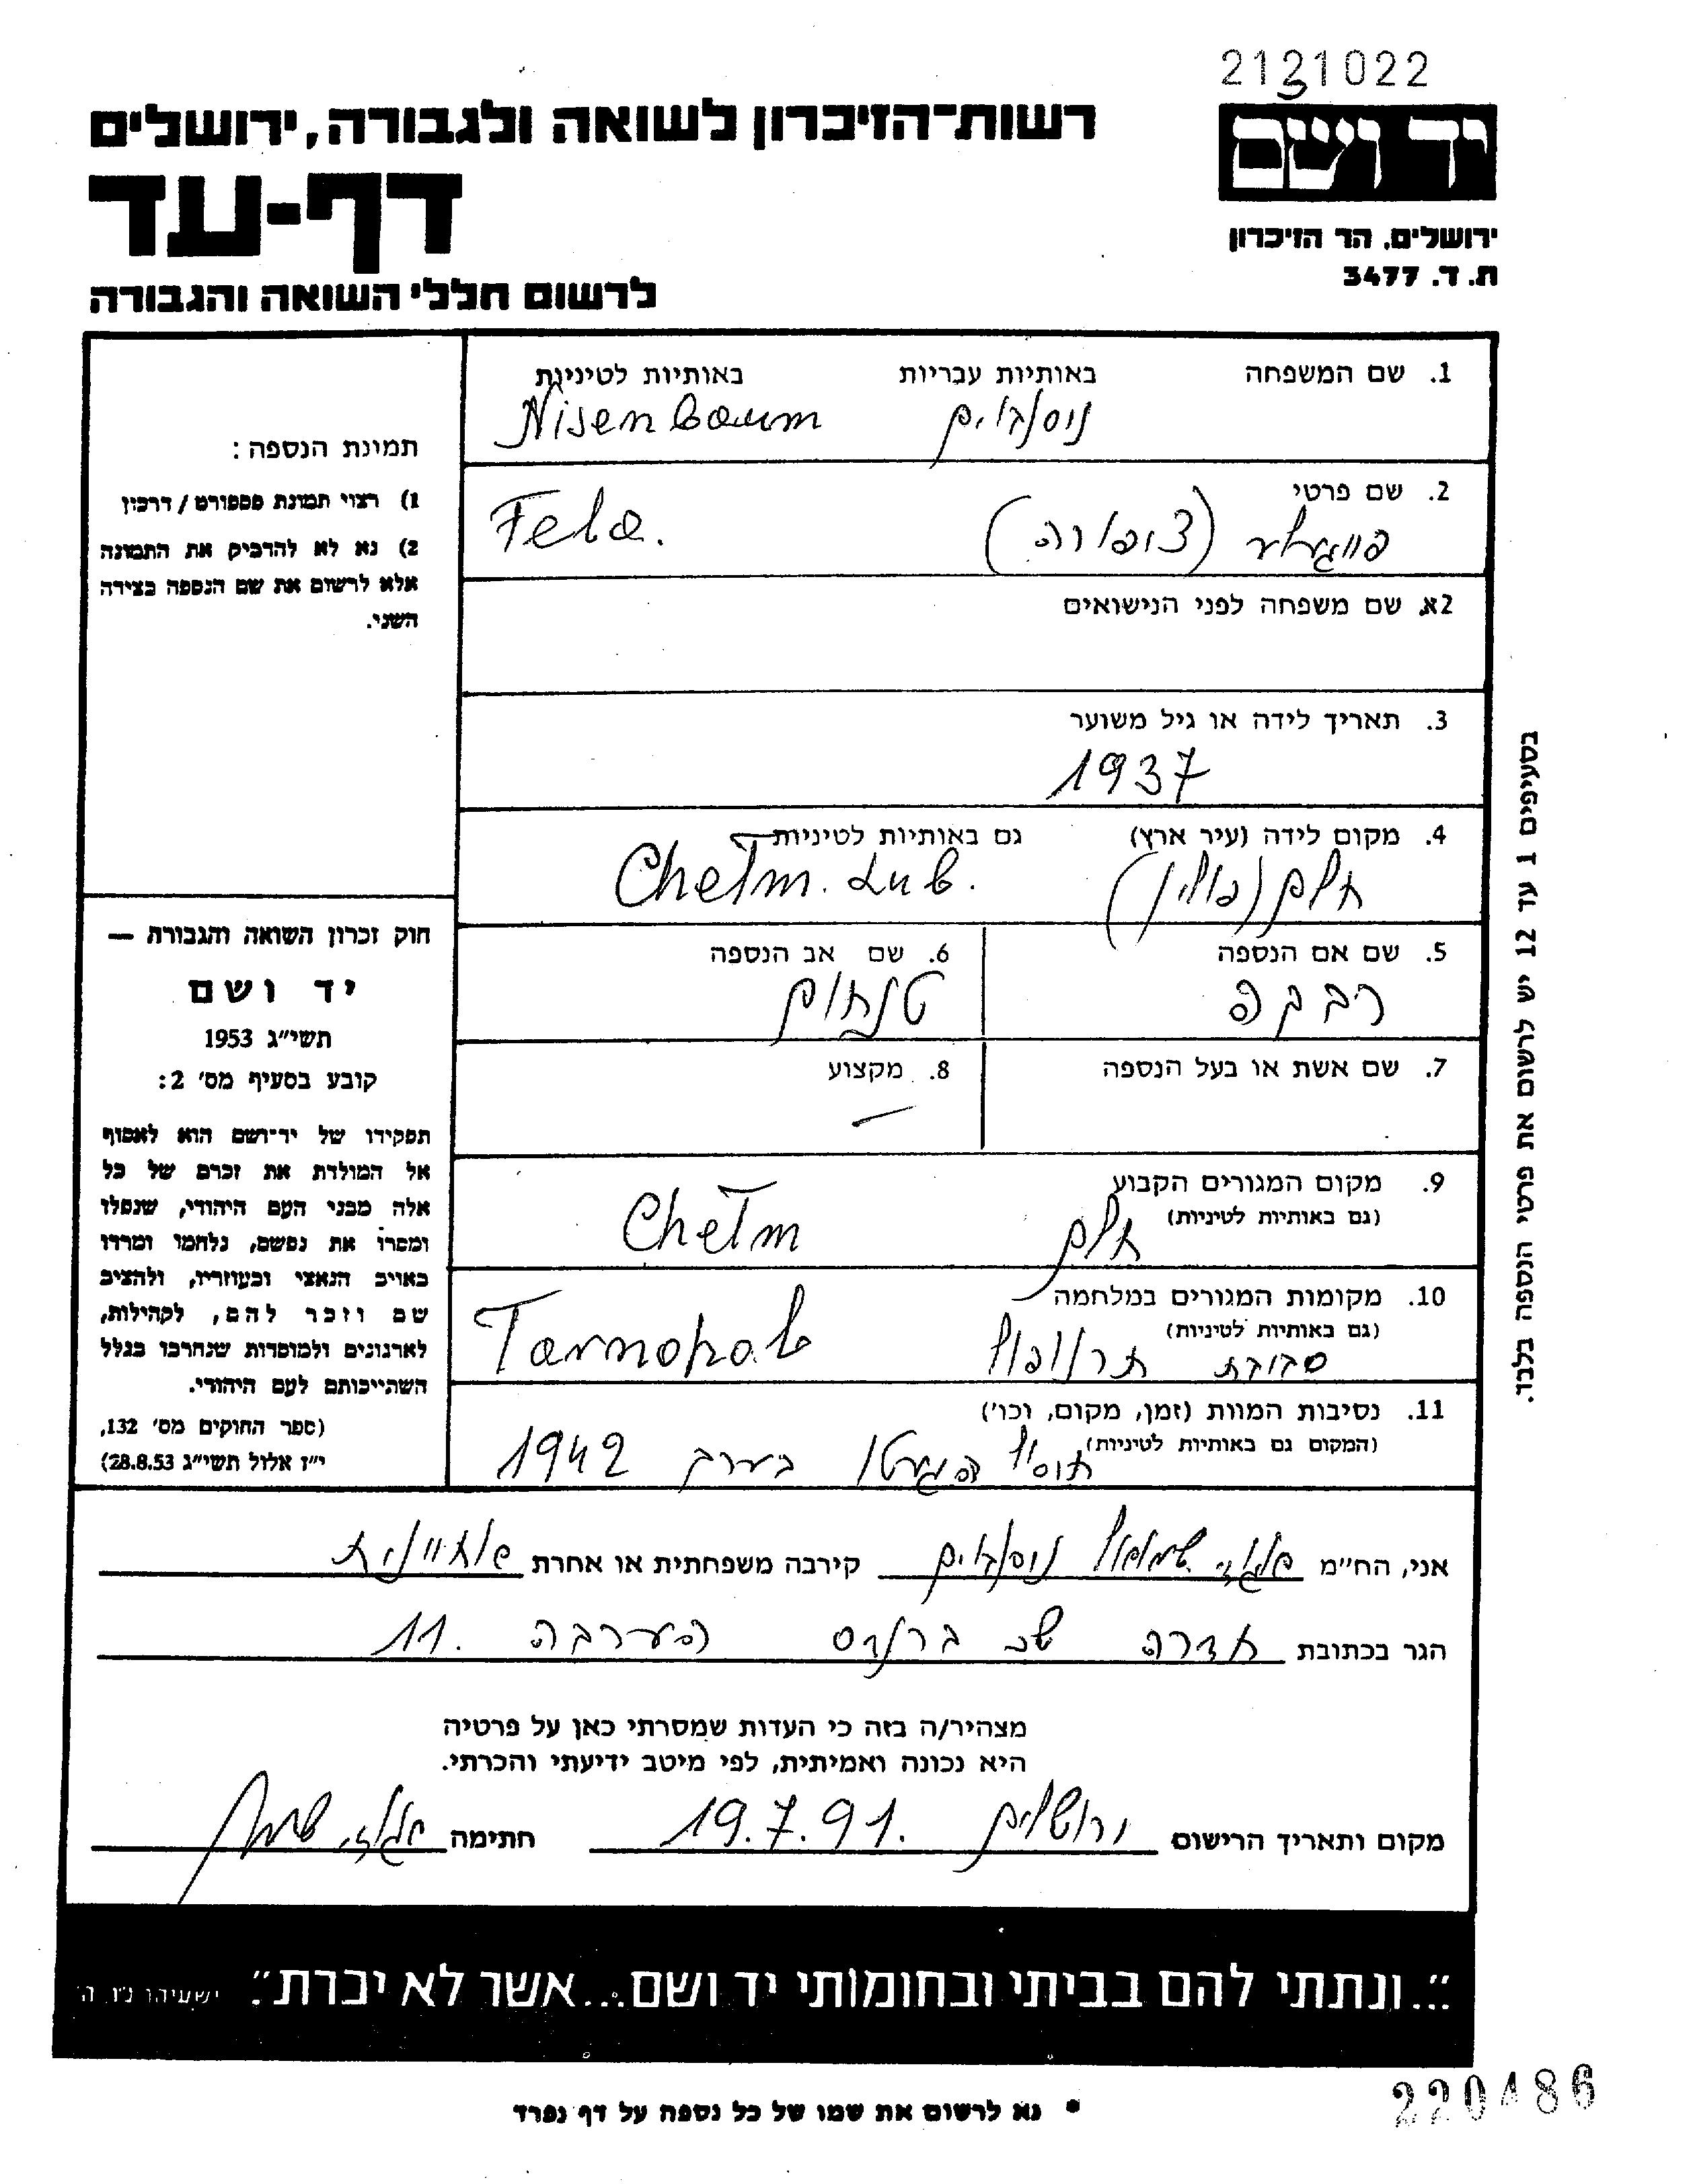 2131022
רשות-הזיכרון לשואה ולגבורה, ירושלים
יד ושם
דף-עד
ירושלים, הר הזיכרון
ת. ד. 3477
לרשום חללי השואה והגבורה
1. שם המשפחה באותיות עבריות באותיות לטיניות
ניסנבוים Nisenbaum
2. שם פרטי
פייגעלע (ציפורה) Fela.
2א. שם משפחה לפני הנישואים
3. תאריך לידה או גיל משוער
1937
4. מקום לידה (עיר ארץ) גם באותיות לטיניות
חלם (פולין) Chełm. Lub.
5. שם אם הנספה
רבקה
6. שם אב הנספה
תנחום
7. שם אשת או בעל הנספה
8. מקצוע
—
9. מקום המגורים הקבוע
(גם באותיות לטיניות)
חלם Chełm
10. מקומות המגורים במלחמה
(גם באותיות לטיניות)
סביבת תרנופול Tarnopol
11. נסיבות המוות (זמן, מקום, וכו')
(המקום גם באותיות לטיניות)
חוסול הגיטו בערך 1942
תמונת הנספה:
1) רצוי תמונת פספורט/דרכון
2) נא לא להדביק את התמונה
אלא לרשום את שם הנספה בצידה
השני.
חוק זכרון השואה והגבורה —
יד ושם
תשי"ג 1953
קובע בסעיף מס' 2:
תפקידו של יד-ושם הוא לאסוף
אל המולדת את זכרם של כל
אלה מבני העם היהודי, שנפלו
ומסרו את נפשם, נלחמו ומרדו
באויב הנאצי ובעוזריו, ולהציב
שם וזכר להם, לקהילות,
לארגונים ולמוסדות שנחרבו בגלל
השתייכותם לעם היהודי.
(ספר החוקים מס' 132,
י"ז אלול תשי"ג 28.8.53)
בסעיפים 1 עד 12 יש לרשום את פרטי הנספה בלבד.
אני, הח"מ שמואל ניסנבוים קירבה משפחתית או אחרת אחיינית
הגר בכתובת חדרה שכ ברנדס הערבה 11.
מצהיר/ה בזה כי העדות שמסרתי כאן על פרטיה
היא נכונה ואמיתית, לפי מיטב ידיעתי והכרתי.
מקום ותאריך הרישום ירושלים 19.7.91. חתימה
"...ונתתי להם בביתי ובחומותי יד ושם...אשר לא יכרת". ישעיהו נ"ו ה'
* נא לרשום את שמו של כל נספה על דף נפרד
220486